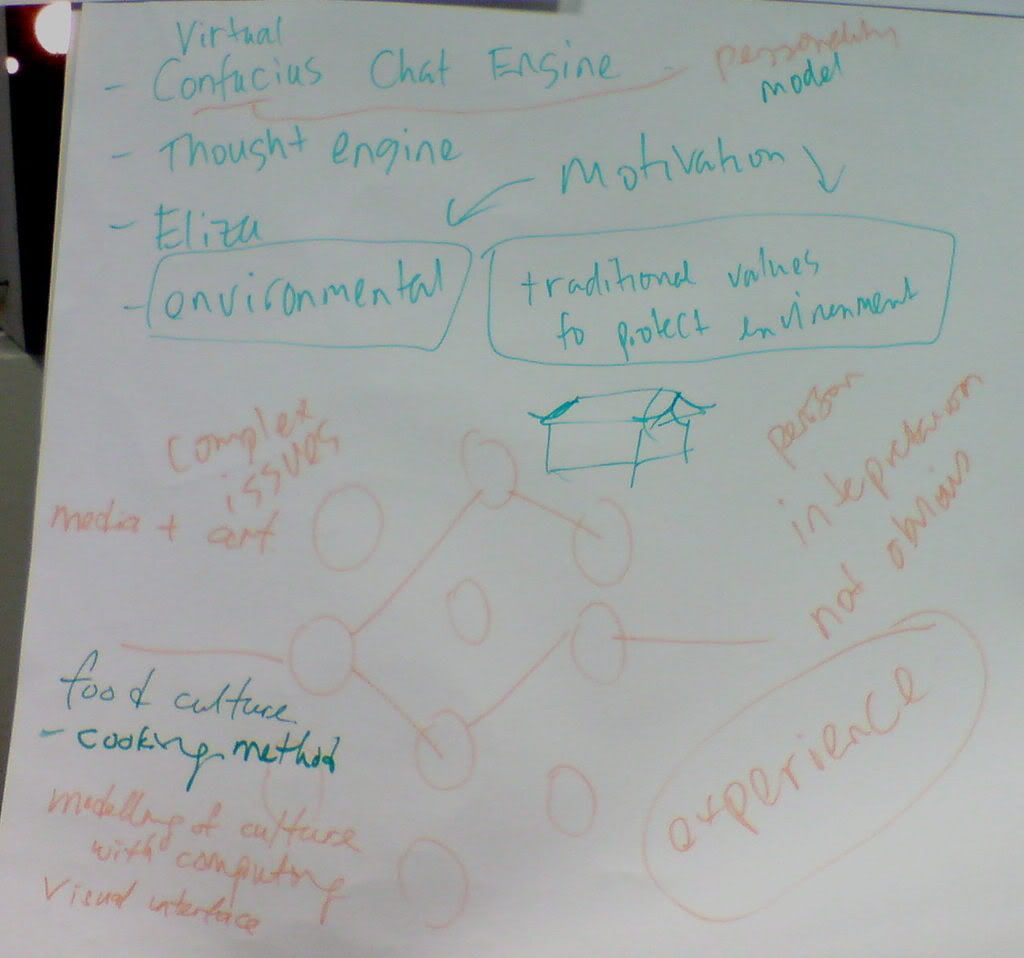 Virtual
- Confucius Chat Engine personality
model
- Thought engine
Motivation
- Eliza
- environmental
traditional values
to protect environment
complex
issues
media + art
person
intepretation
not obvious
food culture
- cooking method
experience
modelling of culture
with computing
Visual interface